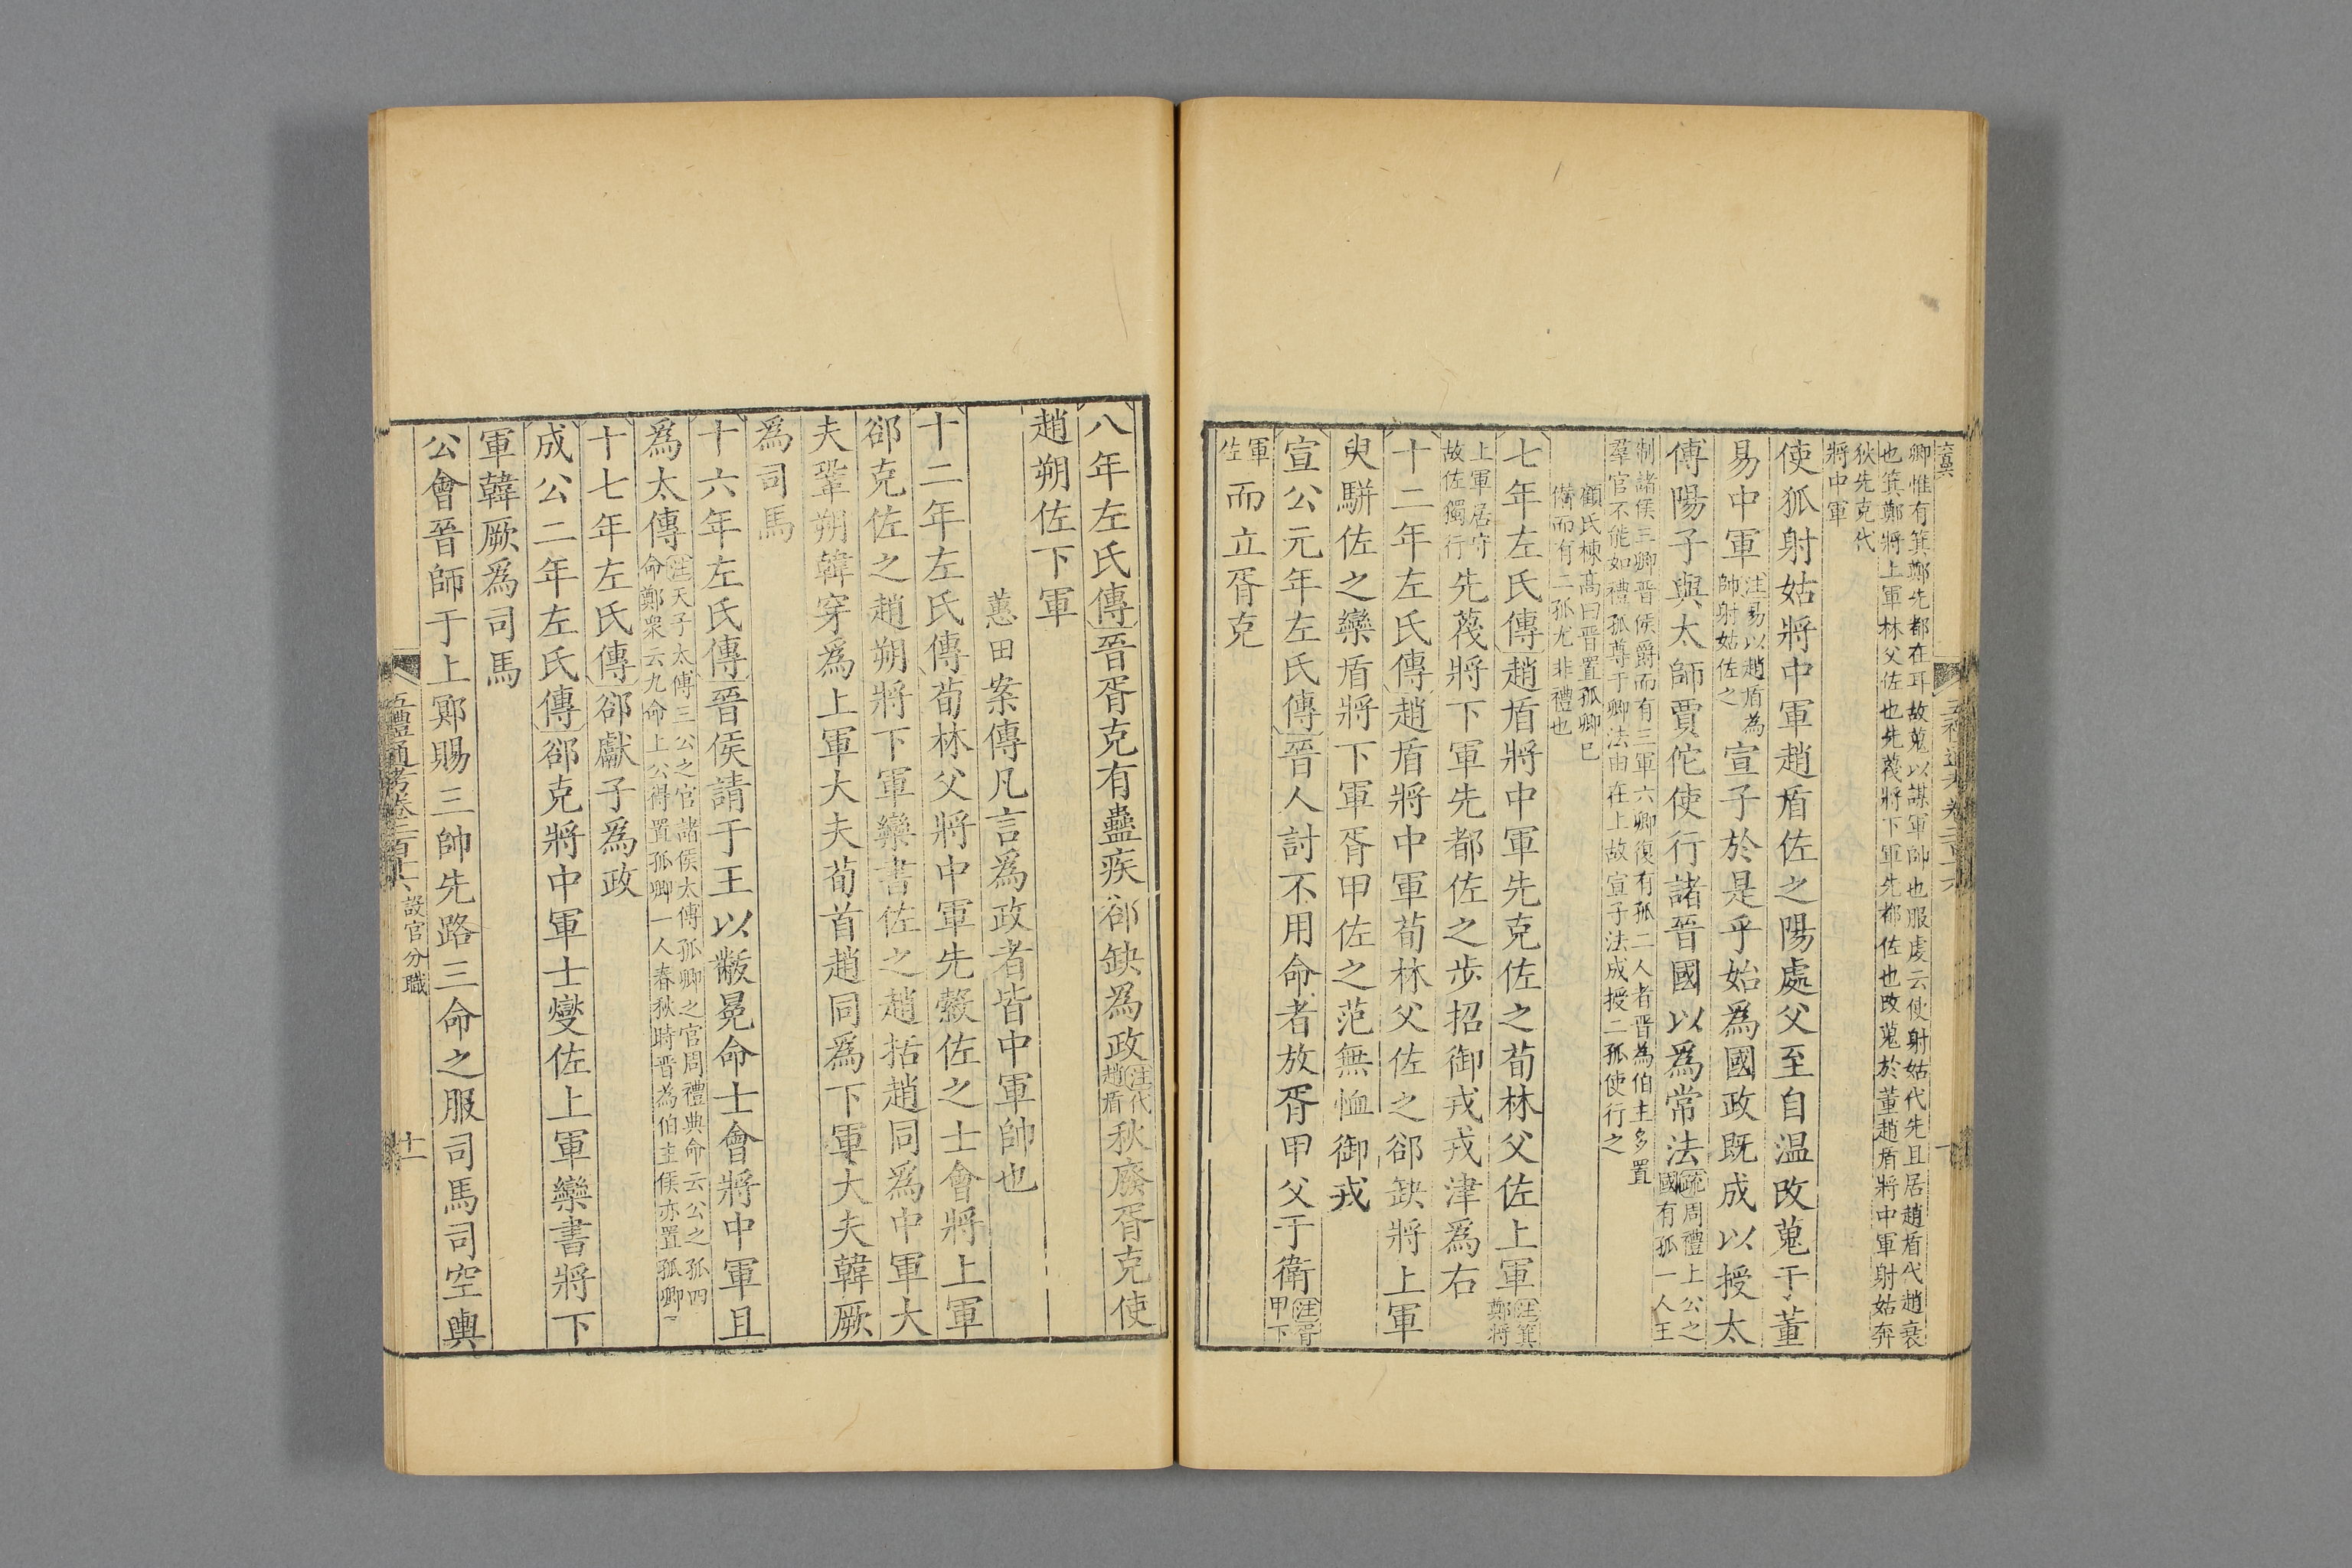 卿惟有箕鄭先都在耳故蒐以謀軍帥也服虔云使射姑代先且居趙盾代趙衰
也箕鄭將上軍林父佐也先蔑將下軍先都佐也改蒐於董趙盾將中軍射姑奔
狄先克代
將中軍
使狐射姑將中軍趙盾佐之陽處父至自温改蒐于董
易中軍注易以趙盾為帥射姑佐之宣子於是乎始爲國政既成以授太
傅陽子與太師賈佗使行諸晉國以爲常法疏周禮上公之國有孤一人王
制諸侯三卿晋侯爵而有三軍六卿復有孤二人者晋為伯主多置
羣官不能如禮孤尊于卿法由在上故宣子法成授二孤使行之
顧氏棟高曰晋置孤卿已
僭而有二孤尤非禮也
七年左氏傳趙盾將中軍先克佐之荀林父佐上軍注箕鄭將
上軍居守故佐獨行先蔑將下軍先都佐之步招御戎戎津爲右
十二年左氏傳趙盾將中軍荀林父佐之郤缺將上軍
臾駢佐之欒盾將下軍胥甲佐之范無恤御戎
宣公元年左氏傳晉人討不用命者放胥甲父于衛注胥甲下
軍佐而立胥克
八年左氏傳晉胥克有蠱疾郤缺爲政注代趙盾秋廢胥克使
趙朔佐下軍
蕙田案傳凡言爲政者皆中軍帥也
十二年左氏傳荀林父將中軍先縠佐之士會將上軍
郤克佐之趙朔將下軍欒書佐之趙括趙同爲中軍大
夫鞏朔韓穿爲上軍大夫荀首趙同爲下軍大夫韓厥
爲司馬
十六年左氏傳晉侯請于王以黻冕命士會將中軍且
爲太傅注天子太傅三公之官諸侯大傅孤卿之官周禮典命云公之孤四命鄭衆云九命上公得置孤卿一人春秋時晋為伯主侯亦置孤卿
十七年左氏傳郤獻子爲政
成公二年左氏傳郤克將中軍士燮佐上軍欒書將下
軍韓厥爲司馬
公會晉師于上鄍賜三帥先路三命之服司馬司空輿
五禮通考卷二百十六 設官分職
十一